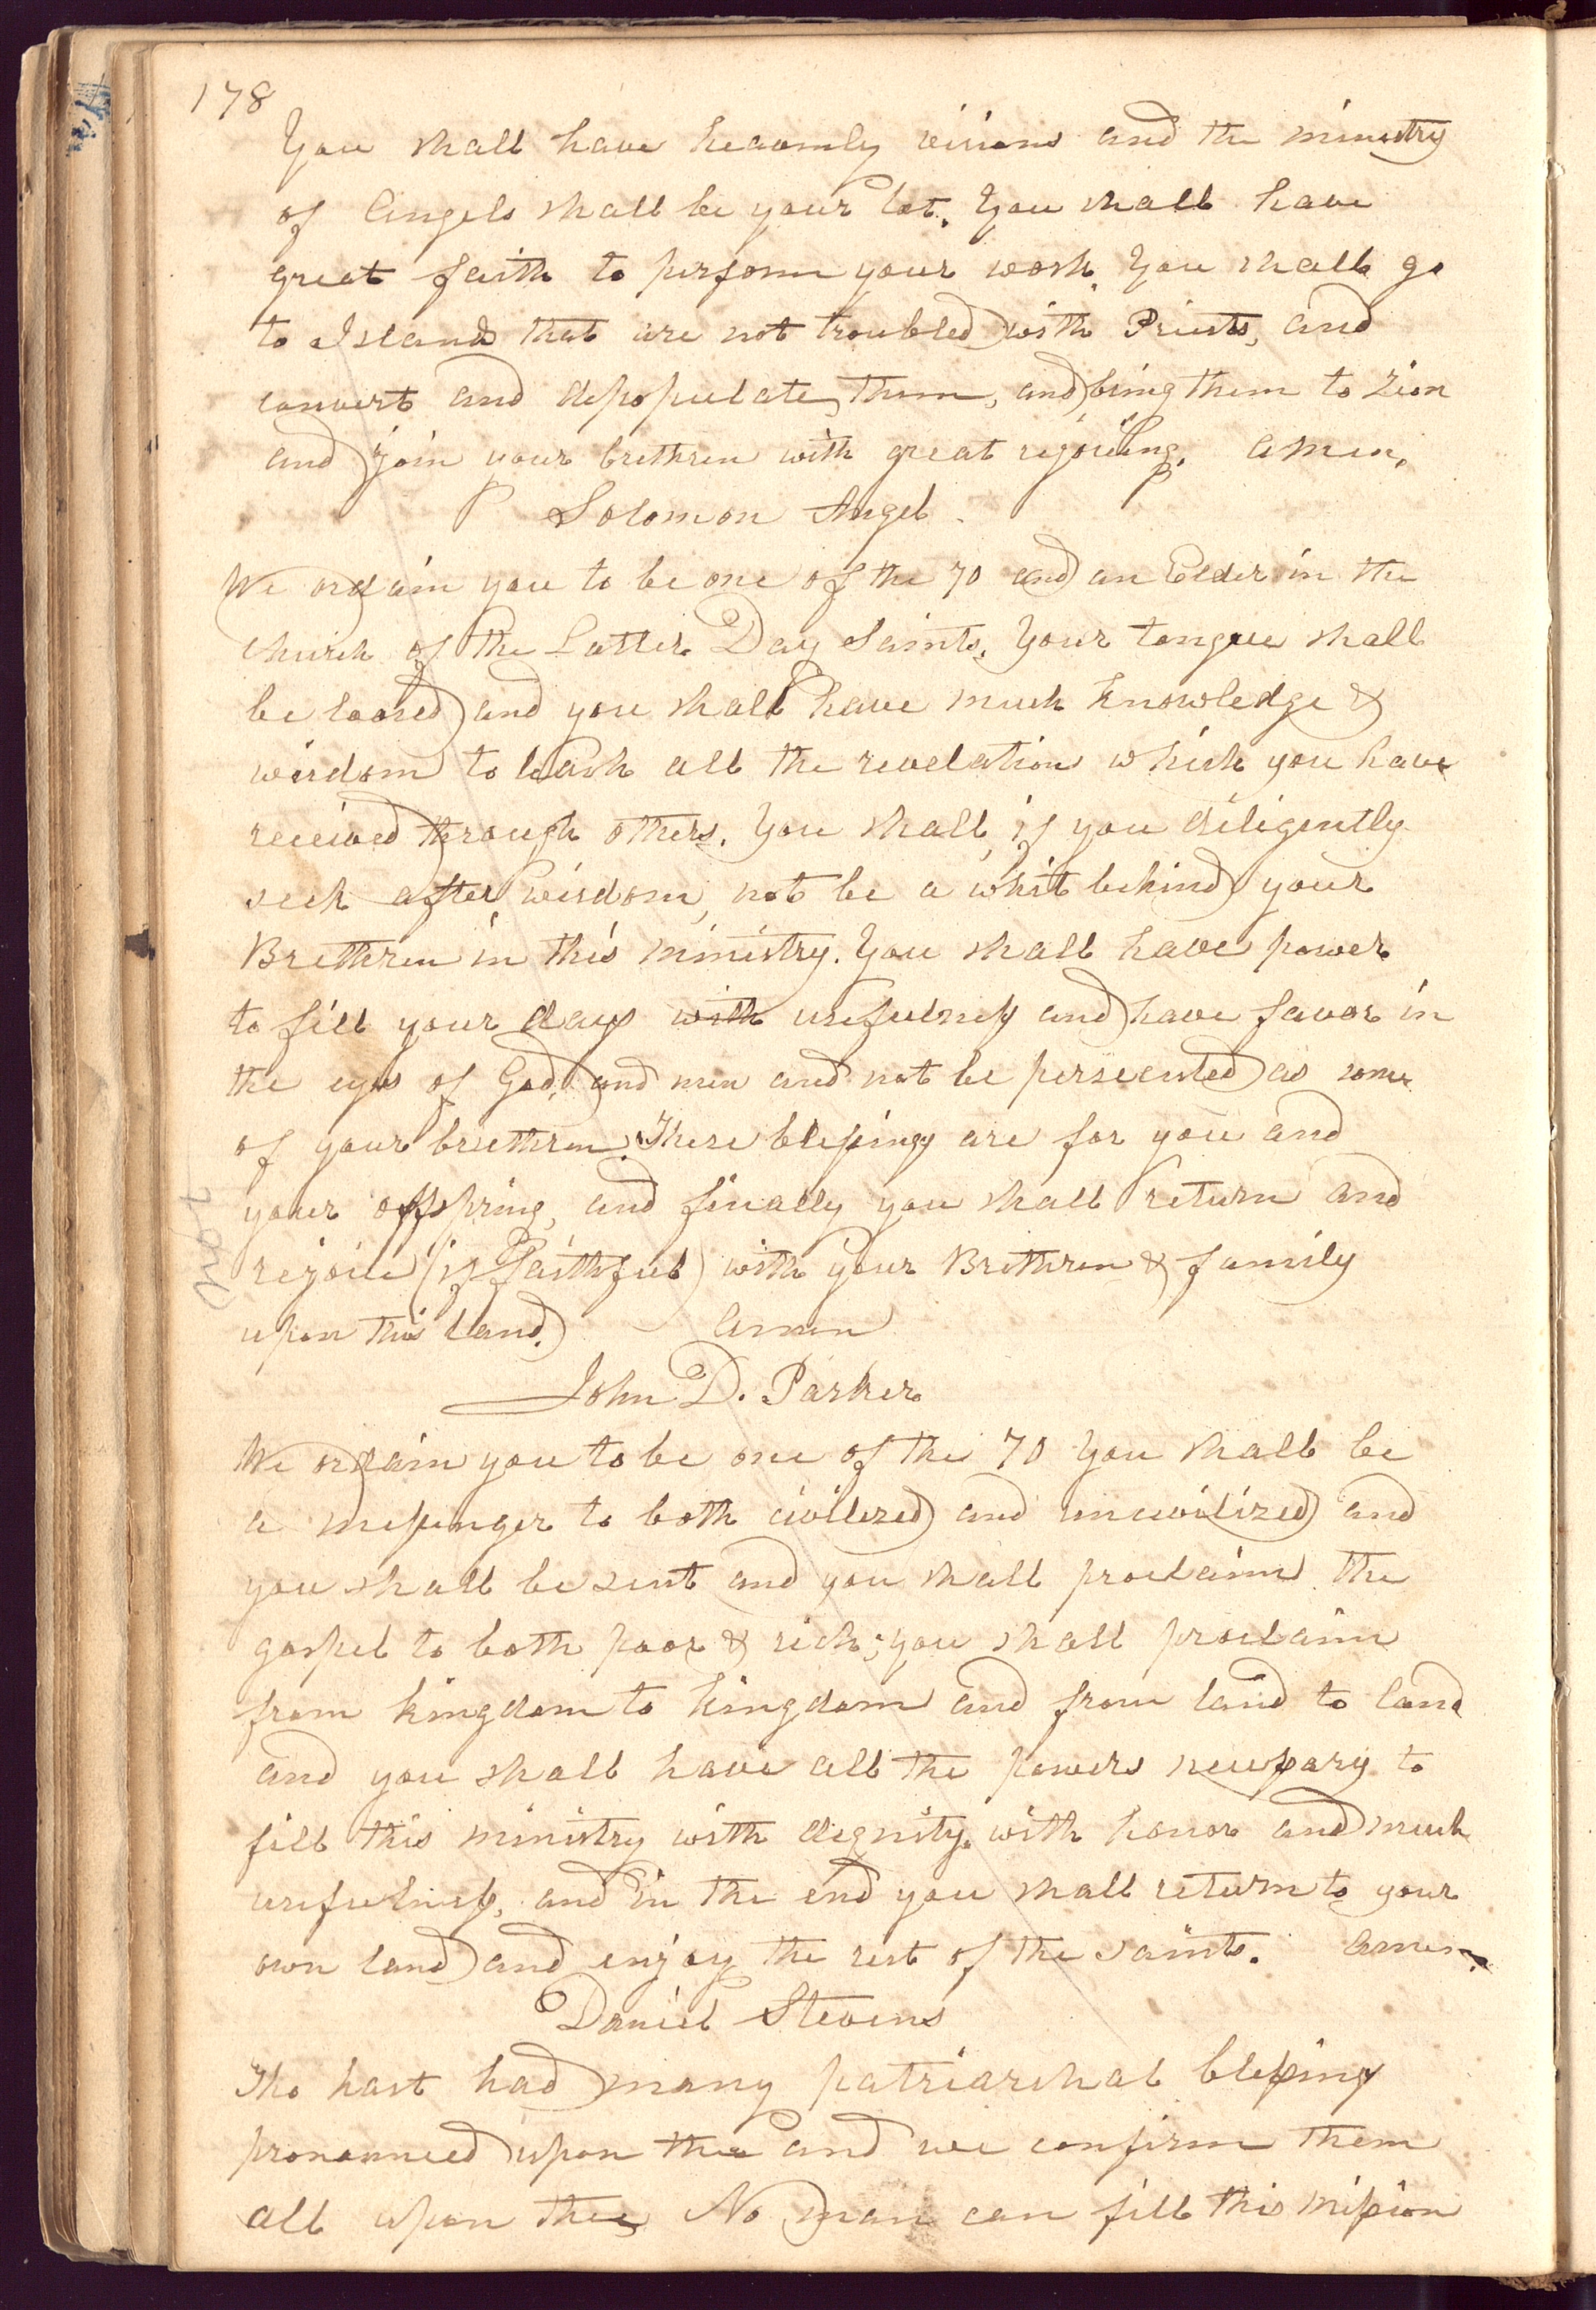 178
You shall have heavenly visions and the ministry
of Angels shall be your lot. You shall have
great faith to perform your work. You shall go
to Islands that are not troubled with Priests, and
convert and depopulate them, and bring them to Zion
and join your brethren with great rejoicing. Amen.
Solomon Angel.
We ordain you to be one of the 70 and an Elder in the
church of the Latter Day Saints. Your tongue shall
be loosed and you shall have much knowledge &
wisdom to teach all the revelation which you have
received through others. You shall, if you diligently
seek after wisdom, not be a whit behind your
Brethren in this ministry. You shall have power
to fill your days with usefulness and have favor in
the eyes of God, and men and not be persecuted as some
of your breethren. These blessings are for you and
your offspring, and finally you shall return and
not
rejoice (if faithful) with your Brethren & family
upon this land. Amen
John D. Parker
We ordain you to be one of the 70 You shall be
a messenger to both civilized and uncivilized and
you shall be sent and you shall proclaim the
gospel to both poor & rich; you shall proclaim
from kingdom to kingdom and from land to land
and you shall have all the powers necessary to
fill this ministry with dignity, with honor and much
usefulness, and in the end you shall return to your
own land and enjoy the rest of the saints. Amen.
Daniel Stevens
Tho hast had many patriarchal blessings
pronounced upon thee and we confirm them
all upon thee No man can fill this mission